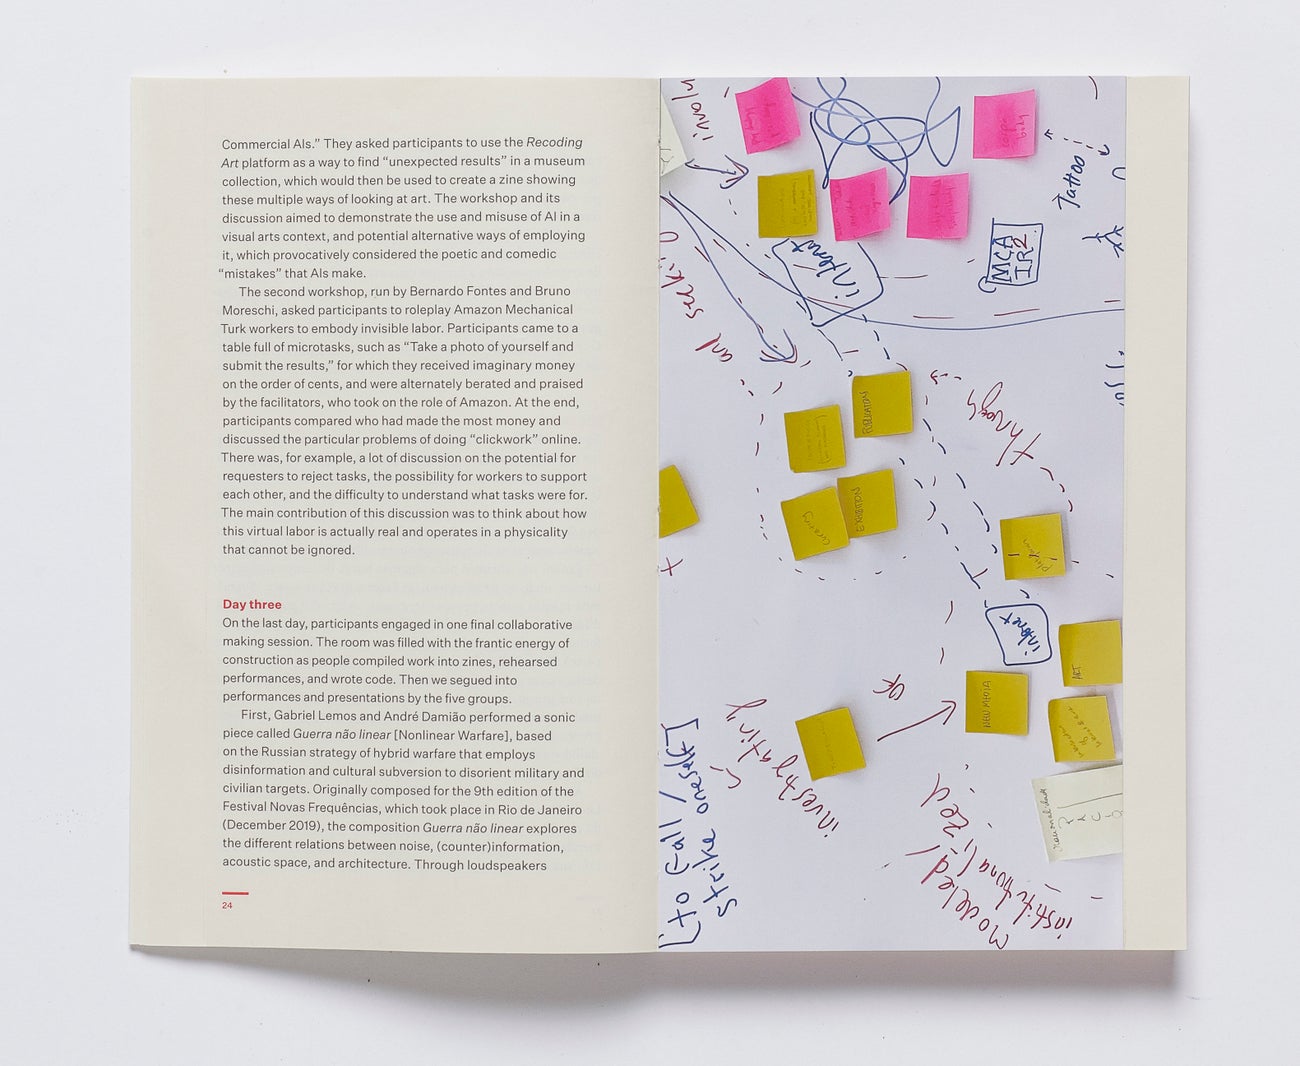 Commercial AIs.” They asked participants to use the Recoding
Art platform as a way to find “unexpected results” in a museum
collection, which would then be used to create a zine showing
these multiple ways of looking at art. The workshop and its
discussion aimed to demonstrate the use and misuse of AI in a
visual arts context, and potential alternative ways of employing
it, which provocatively considered the poetic and comedic
“mistakes” that AIs make.
The second workshop, run by Bernardo Fontes and Bruno
Moreschi, asked participants to roleplay Amazon Mechanical
Turk workers to embody invisible labor. Participants came to a
table full of microtasks, such as “Take a photo of yourself and
submit the results,” for which they received imaginary money
on the order of cents, and were alternately berated and praised
by the facilitators, who took on the role of Amazon. At the end,
participants compared who had made the most money and
discussed the particular problems of doing “clickwork” online.
There was, for example, a lot of discussion on the potential for
requesters to reject tasks, the possibility for workers to support
each other, and the difficulty to understand what tasks were for.
The main contribution of this discussion was to think about how
this virtual labor is actually real and operates in a physicality
that cannot be ignored.
Day three
On the last day, participants engaged in one final collaborative
making session. The room was filled with the frantic energy of
construction as people compiled work into zines, rehearsed
performances, and wrote code. Then we segued into
performances and presentations by the five groups.
First, Gabriel Lemos and André Damião performed a sonic
piece called Guerra não linear [Nonlinear Warfare], based
on the Russian strategy of hybrid warfare that employs
disinformation and cultural subversion to disorient military and
civilian targets. Originally composed for the 9th edition of the
Festival Novas Frequências, which took place in Rio de Janeiro
(December 2019), the composition Guerra não linear explores
the different relations between noise, (counter)information,
acoustic space, and architecture. Through loudspeakers
24
Tattoo
MCA
IR2
and
through
PUBLICATION
EXHIBITION
ART
NEW MEDIA
OF
investigating
[to fall /
strike oneself]
modeled /